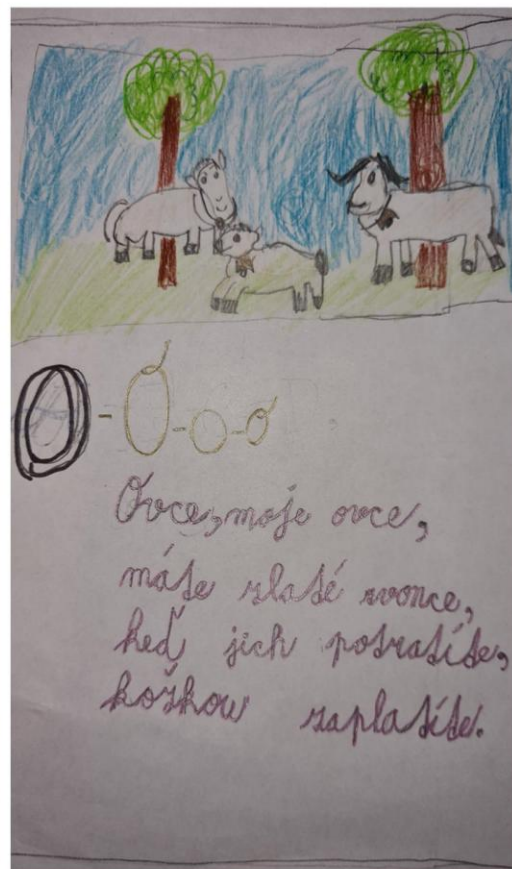 O - O - o - o
Ovce, moje ovce,
máte zlaté zvonce,
keď jich potratíte,
kožkow zaplatíte.